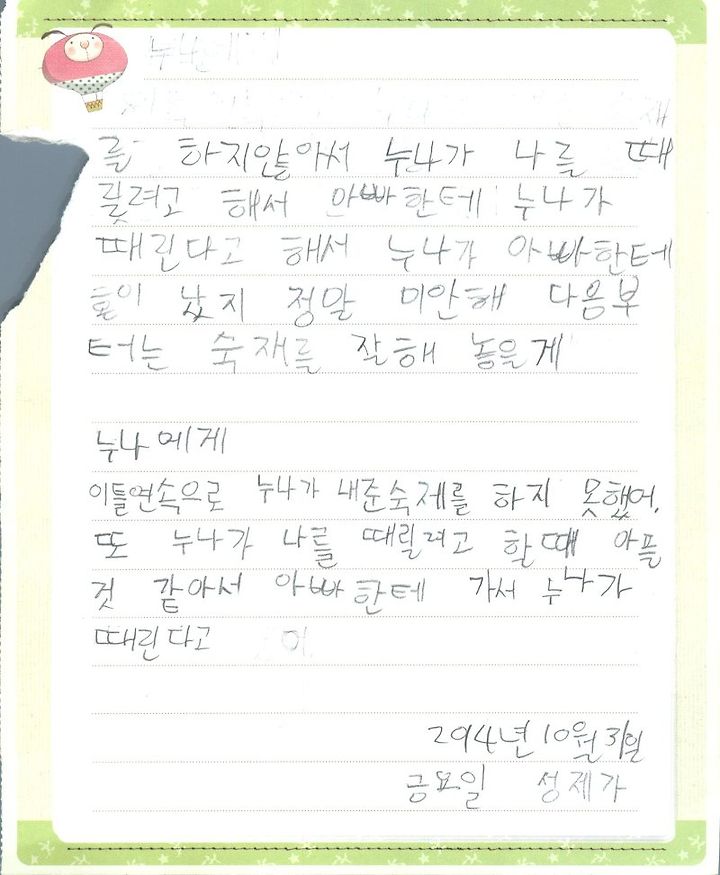 누나에게
를 하지않아서 누나가 나를 때
릴려고 해서 아빠한테 누나가
때린다고 해서 누나가 아빠한테
혼이 났지 정말 미안해 다음부
터는 숙재를 잘해 놓을게
누나에게
이틀연속으로 누나가 내준숙제를 하지 못했어,
또 누나가 나를 때릴려고 할때 아플
것 같아서 아빠한테 가서 누나가
때린다고
2014년 10월 31일
금요일 성제가